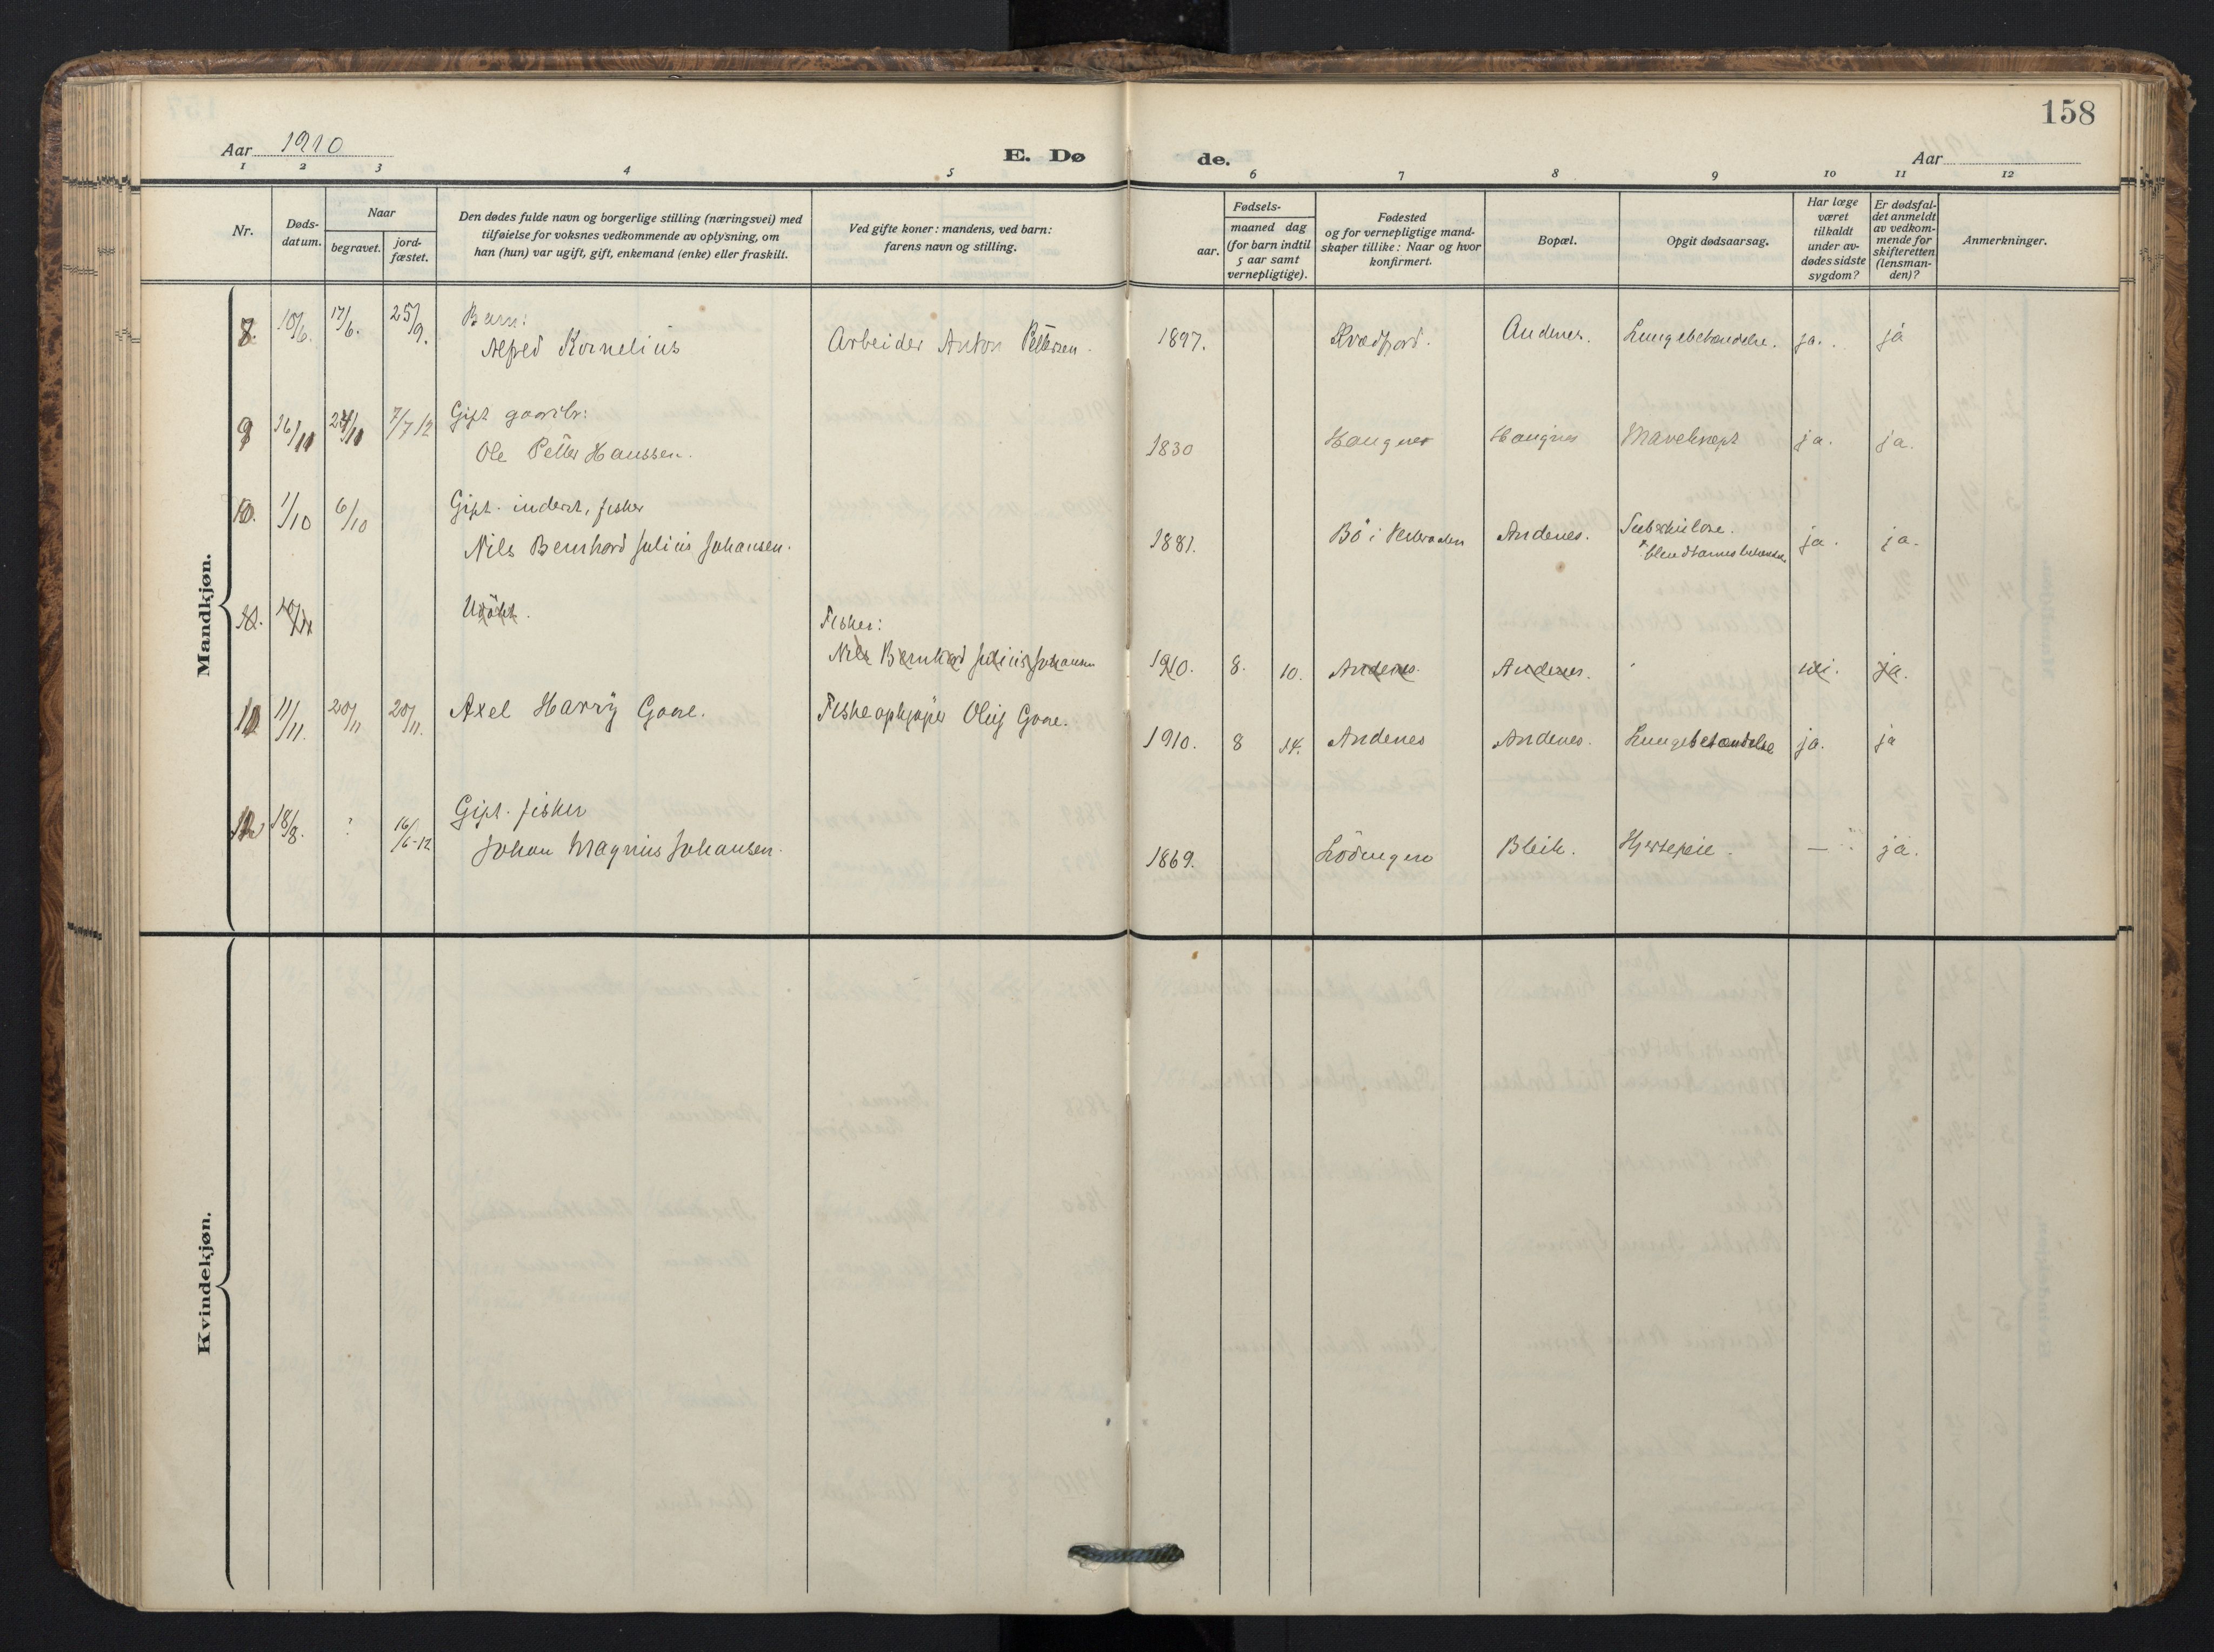 158
Aar 1910
E. Dø
de.
Aar
1 2 3 4 5 6 7 8 9 10 11 12
Nr.
Døds-
datum.
Naar
begravet.
jord-
fæstet.
Den dødes fulde navn og borgerlige stilling (næringsvei) med
tilføielse for voksnes vedkommende av oplysning, om
han (hun) var ugift, gift, enkemand (enke) eller fraskilt.
Ved gifte koner: mandens, ved barn:
farens navn og stilling.
Fødsels-
aar.
maaned dag
(for barn indtil
5 aar samt
vernepligtige).
Fødested
og for vernepligtige mand-
skaper tillike: Naar og hvor
konfirmert.
Bopæl.
Opgit dødsaarsag.
Har læge
været
tilkaldt
under av-
dødes sidste
sygdom?
Er dødsfal-
det anmeldt
av vedkom-
mende for
skifteretten
(lensman-
den)?
Anmerkninger.
Mandkjøn.
8. 10/6. 17/6. 25/9. Barn:
Alfred Kornelius Arbeider Anton Pettersen. 1897. Kvædfjord. Andenes. Lungebetændelse. ja. ja
9 16/10 24/10 7/7 12 Gift gaarbr:
Ole Petter Hanssen. 1830 Haugnes Haugnes Mavekræft ja. ja.
10. 1/10 6/10 Gift. inderst, fisker
Nils Bernhard Julius Johansen. 1881. Bö i Vesteraalen Andenes. Tuberkulose. ja. ja.
Udöbt. Fisker:
Nils Bernhard Julius Johansen 1910. 8. 10. Andenes. Andenes. nei. ja.
11 11/11. 20/11 20/11. Axel Harry Gaare. Fiskeopkjøper Oluf Gaare. 1910. 8 14. Andenes Andenes. Lungebetændelse ja. ja
12 18/8. ? 16/6-12 Gift. fisker
Johan Magnus Johansen. 1869. Lödingen Bleik. Hjertefeil. — ja.
Kvindekjøn.